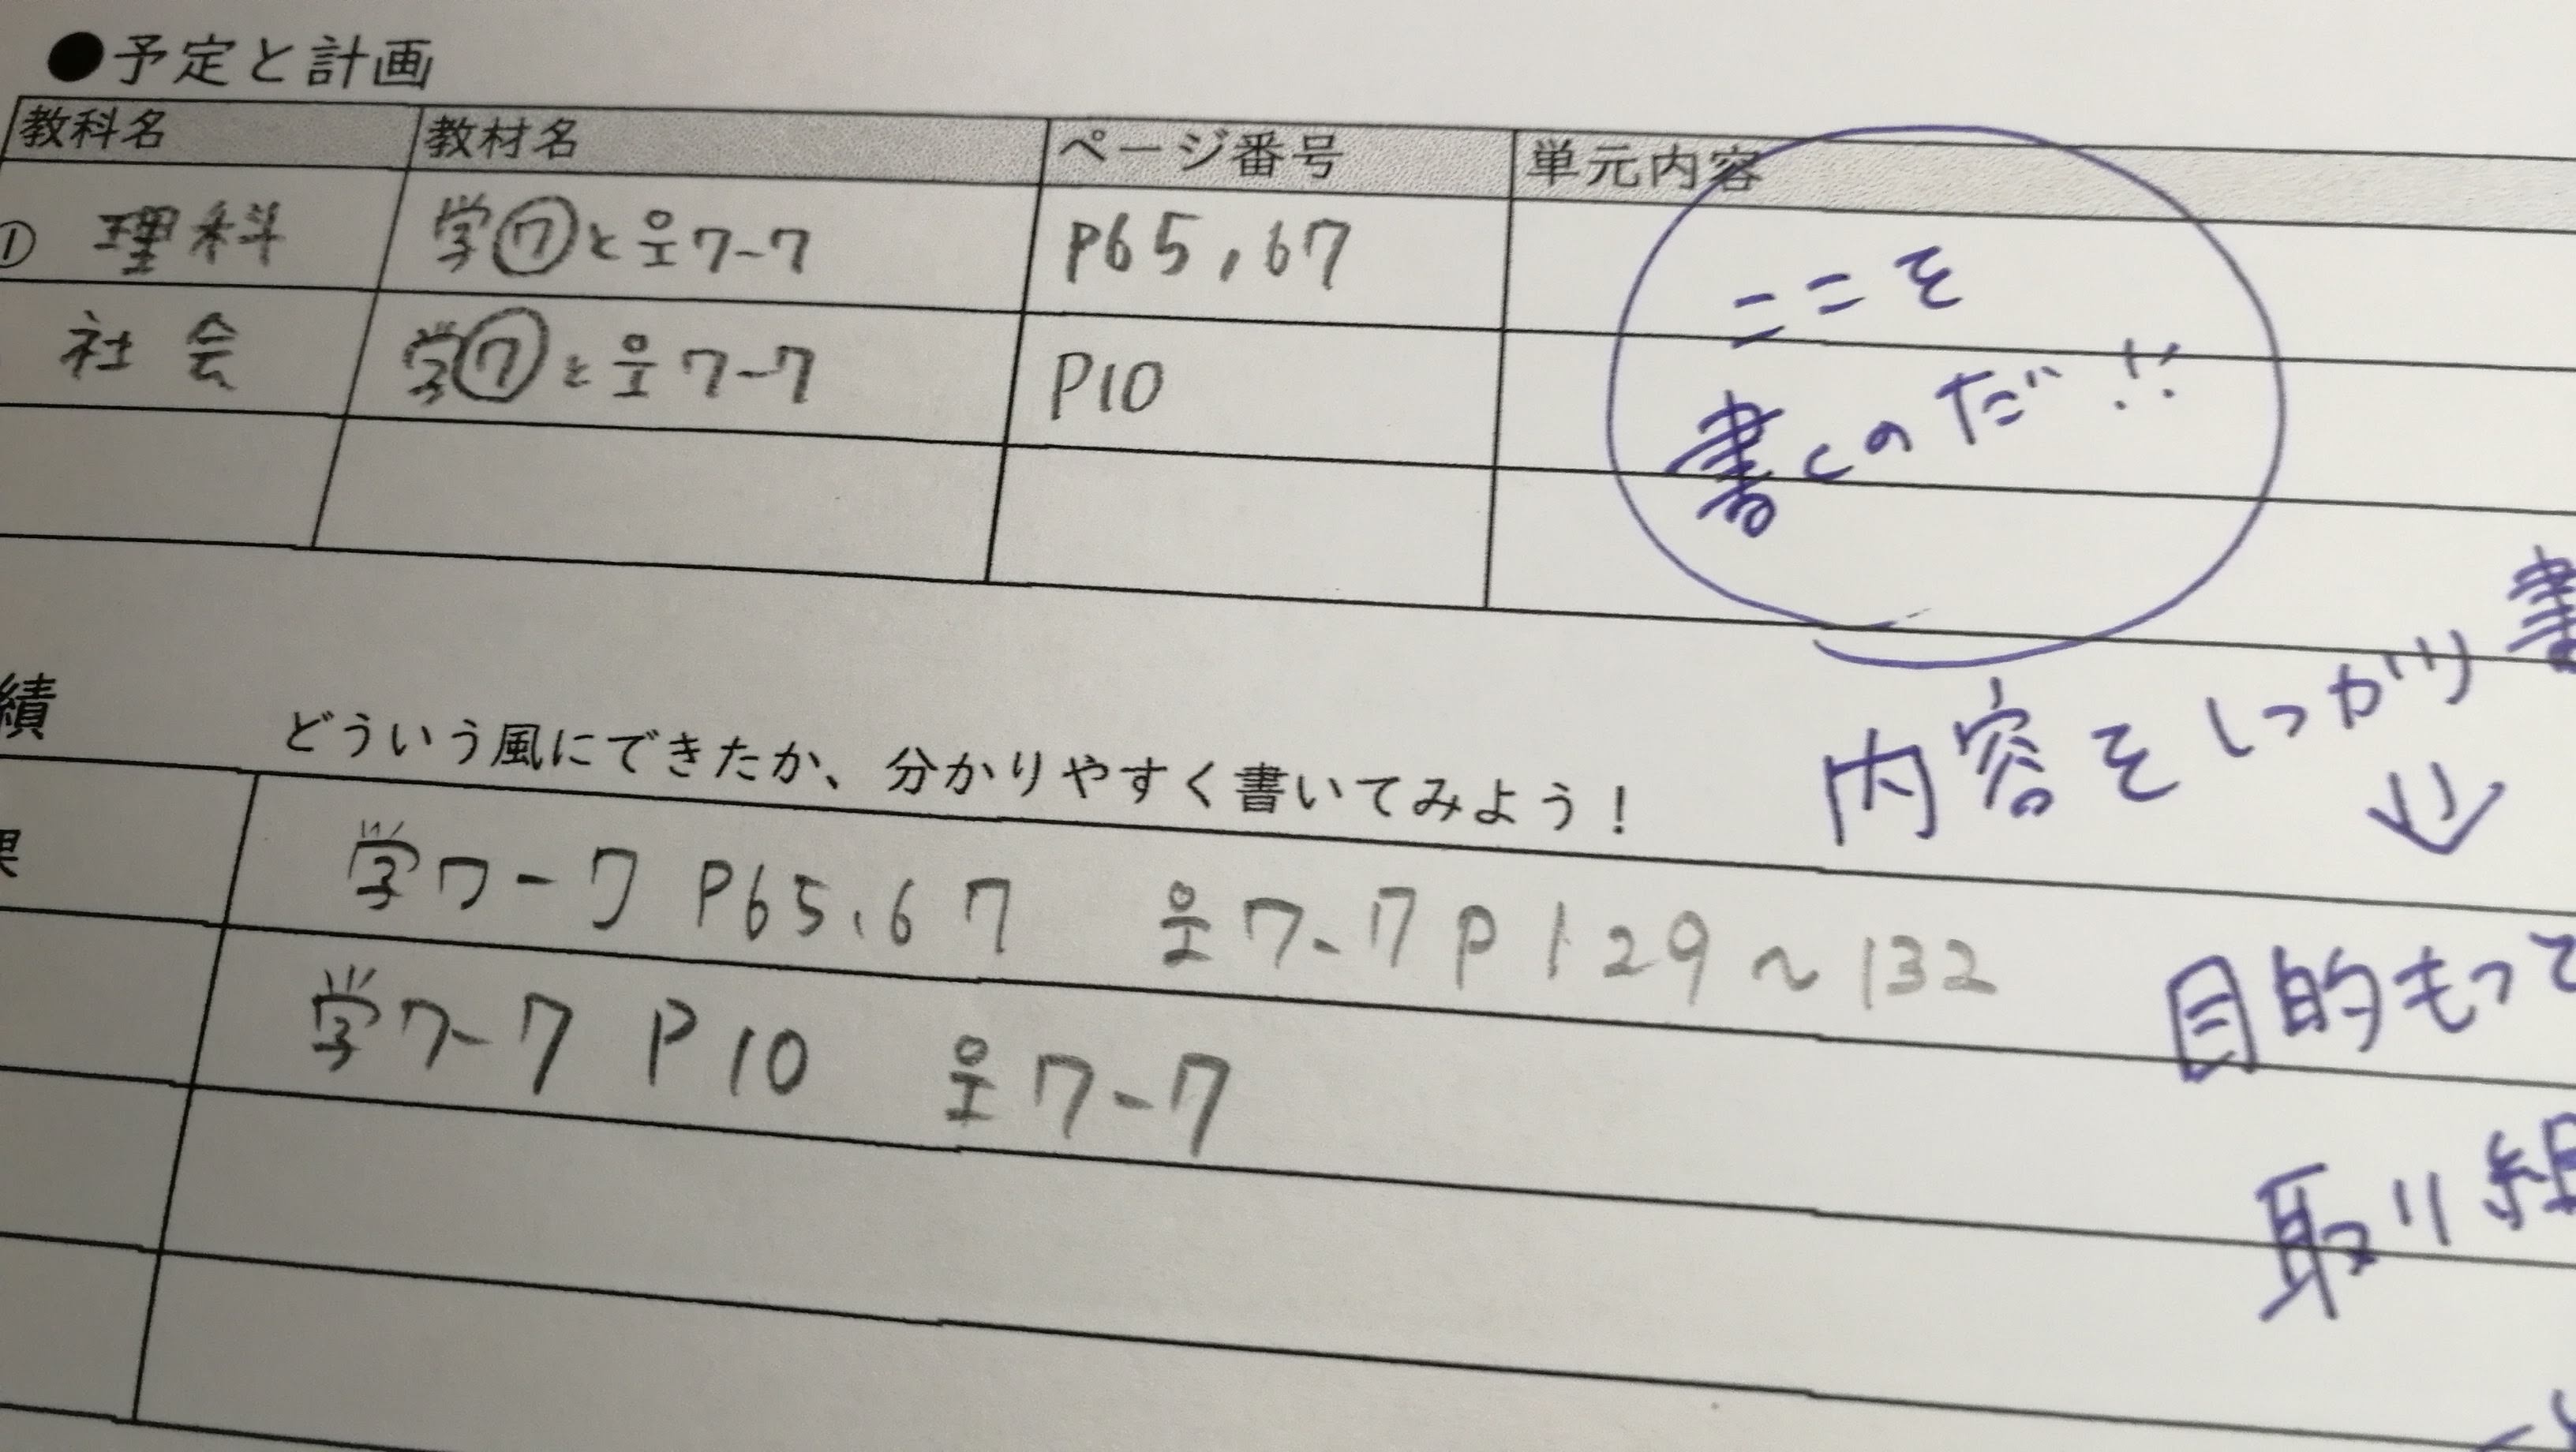 ●予定と計画
教科名 教材名 ページ番号 単元内容
① 理科 学㋆と웊ワーク P65,67
社会 学㋆と웊ワーク P10
ここを
書くのだ!!
績
どういう風にできたか、分かりやすく書いてみよう！
内容をしっかり書
↓
学ワーク P65,67 P129～132
学ワーク P10
目的もって
取り組